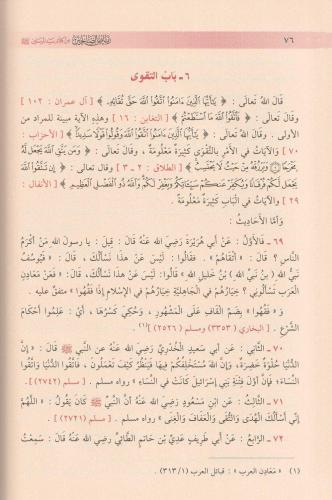 ٧٦
٦ - بَابُ التقوى
قَالَ اللهُ تعالى : ﴿ يَٰٓأَيُّهَا ٱلَّذِينَ ءَامَنُوا۟ ٱتَّقُوا۟ ٱللَّهَ حَقَّ تُقَاتِهِۦ ﴾ [ آل عمران : ١٠٢ ]
وقال تعالى : ﴿ فَٱتَّقُوا۟ ٱللَّهَ مَا ٱسْتَطَعْتُمْ ﴾ [ التغابن : ١٦ ] وهذه الآية مبينة للمراد من
الأولى . وقال تعالى : ﴿ يَٰٓأَيُّهَا ٱلَّذِينَ ءَامَنُوا۟ ٱتَّقُوا۟ ٱللَّهَ وَقُولُوا۟ قَوْلًا سَدِيدًا ﴾ [ الأحزاب :
٧٠ ] والآيات في الأمرِ بالتَّقْوَى كَثِيرَةٌ مَعْلُومَةٌ ، وقال تعالى : ﴿ وَمَن يَتَّقِ ٱللَّهَ يَجْعَل لَّهُۥ
مَخْرَجًا وَيَرْزُقْهُ مِنْ حَيْثُ لَا يَحْتَسِبُ ﴾ [ الطلاق : ٢ ـ ٣ ] وقال تعالى : ﴿ إِن تَتَّقُوا۟ ٱللَّهَ
يَجْعَل لَّكُمْ فُرْقَانًا وَيُكَفِّرْ عَنكُمْ سَيِّـَٔاتِكُمْ وَيَغْفِرْ لَكُمْ وَٱللَّهُ ذُو ٱلْفَضْلِ ٱلْعَظِيمِ ﴾ [ الأنفال :
٢٩ ] والآياتُ في البابِ كَثِيرَةٌ مَعْلُومَةٌ .
وَأمَّا الأَحَادِيثُ :
٦٩ ـ فَالأوَّلُ : عَنْ أبي هُرَيْرَةَ رَضِيَ اللهُ عَنْهُ قَالَ : قِيلَ : يا رسولَ اللهِ مَنْ أكْرَمُ
النَّاسِ ؟ قَالَ : « أَتْقَاهُمْ » . فقالوا : لَيْسَ عَنْ هَذَا نَسْأَلُكَ ، قَالَ : « فَيُوسُفُ
نَبِيُّ اللهِ ( بن نَبِيِّ اللهِ ) بْنِ خَلِيلِ اللهِ » قَالُوا : لَيْسَ عَنْ هَذَا نَسْأَلُكَ ، قَالَ : « فَعَنْ مَعَادِنِ
العَرَبِ تَسْأَلُونِي ؟ خِيَارُهُمْ في الجَاهِلِيَّةِ خِيَارُهُمْ في الإِسْلَامِ إذَا فَقُهُوا » متفقٌ عليه .
وَ « فَقُهُوا » بِضَمِّ القَافِ عَلَى المَشْهُورِ ، وَحُكِيَ كَسْرُهَا ، أَيْ : عَلِمُوا أَحْكَامَ
الشَّرْعِ . [ البخاري (٣٣٥٣) ومسلم (٢٥٢٦) ](١) .
٧٠ ـ الثَّانِي : عَنْ أبي سعيدٍ الخُدْرِيِّ رَضِيَ اللهُ عنه عن النبي ﷺ قَالَ : « إنَّ
الدُّنْيَا حُلْوَةٌ خَضِرَةٌ، وَإنَّ اللهَ مُسْتَخْلِفُكُمْ فِيهَا فَيَنْظُرُ كَيْفَ تَعْمَلُونَ ، فَاتَّقُوا الدُّنْيَا وَاتَّقُوا
النِّسَاءَ؛ فَإِنَّ أَوَّلَ فِتْنَةِ بَنِي إِسْرَائِيلَ كَانَتْ في النِّسَاءِ » رواه مسلم . [ مسلم (٢٧٤٢) ] .
٧١ ـ الثَّالِثُ : عَنِ ابْنِ مَسْعُودٍ رَضِيَ اللهُ عَنْهُ أنَّ النبيَّ ﷺ كَانَ يَقُولُ : « اللَّهُمَّ
إنِّي أَسْأَلُكَ الهُدَى وَالتُّقَى وَالعَفَافَ وَالغِنَى » رواه مسلم . [ مسلم (٢٧٢١) ] .
٧٢ ـ الرَّابِعُ : عَنْ أبي طَرِيفٍ عَدِيِّ بْنِ حَاتِمٍ الطَّائِيِّ رضي الله عنه قَالَ : سَمِعْتُ
(١) « مَعَادِن العرب » : قبائل العرب (٣١٣/١)